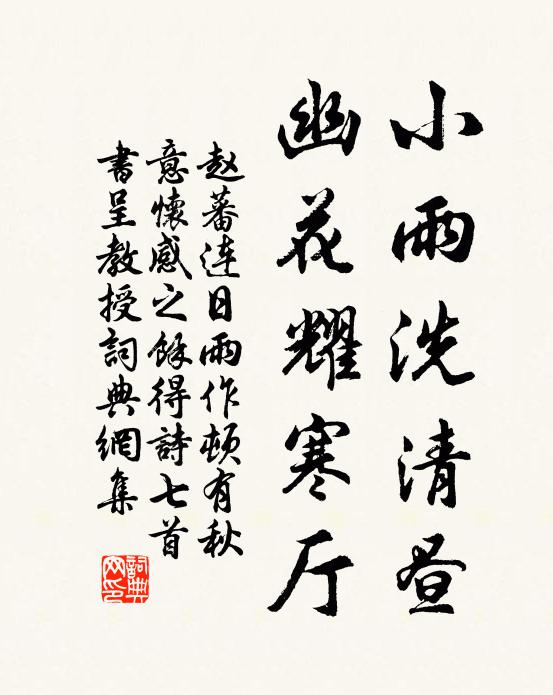 小雨洗清昼
幽花耀寒厅
赵蕃連日雨作頓有秋
意懷感之餘得詩七首
書呈教授詞典網集
詞典
网印